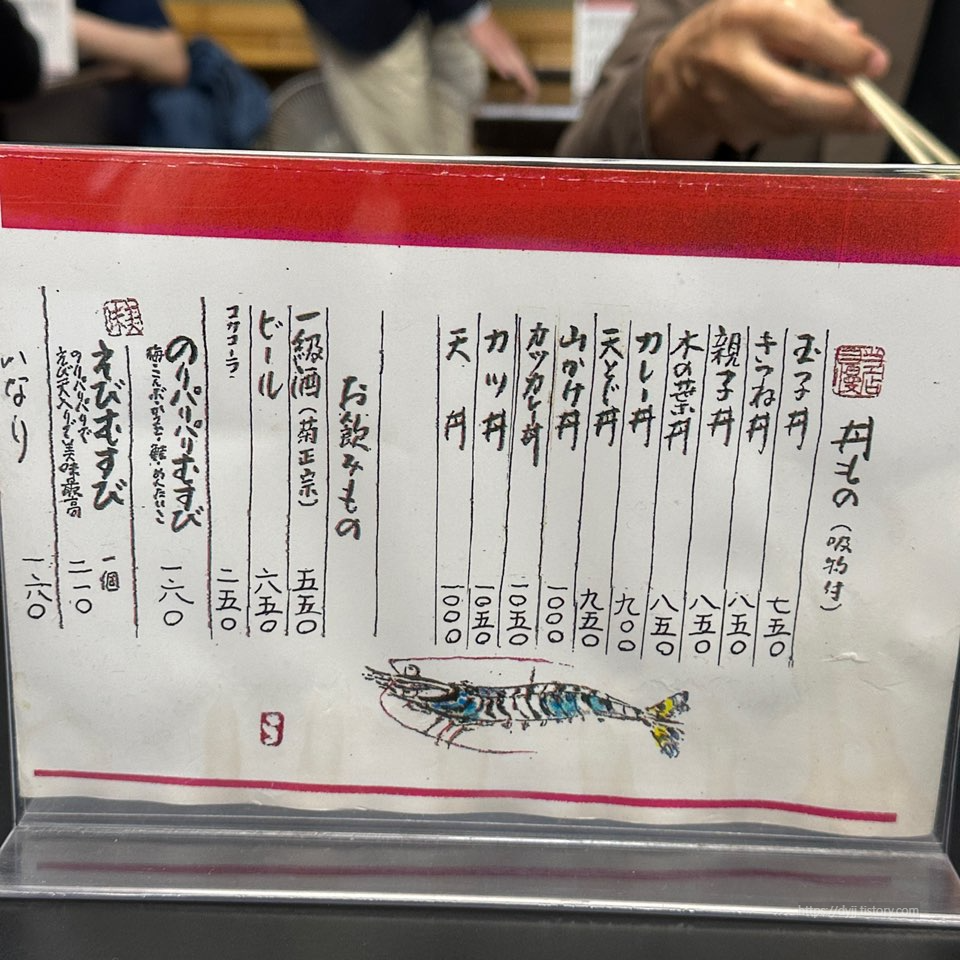 当店自慢
丼もの（吸物付）
玉子丼 七五〇
きつね丼 八五〇
親子丼 八五〇
木の葉丼 八五〇
カレー丼 九〇〇
天とじ丼 九五〇
山かけ丼 一〇〇〇
カツカレー丼 一〇五〇
カツ丼 一〇五〇
天丼 一〇〇〇
お飲みもの
一級酒（菊正宗） 五五〇
ビール 六五〇
コカコーラ 二五〇
のりパリパリむすび 一六〇
梅・こんぶ・かつを・鮭・めんたいこ
美味
えびむすび 一個 二一〇
のりパリパリで
えび天入りでも美味最高
いなり 一六〇
https://dyji.tistory.com